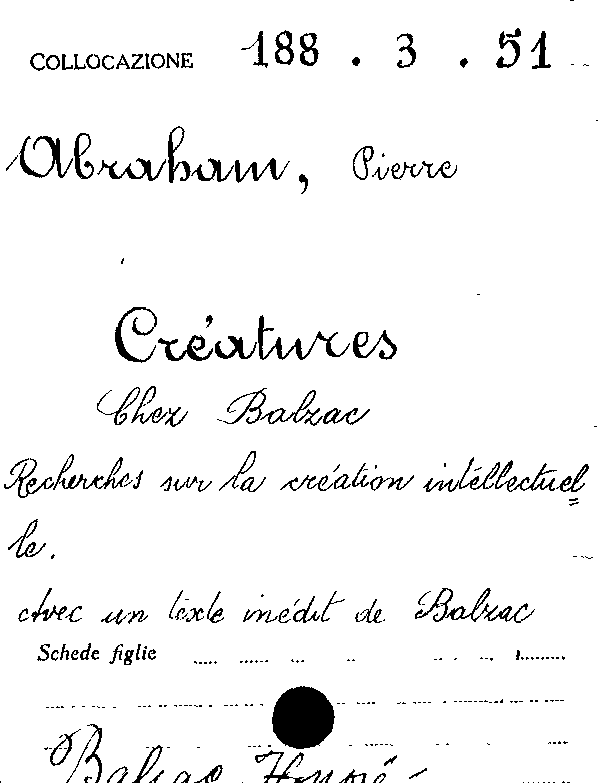 COLLOCAZIONE 188 . 3 . 51
Abraham, Pierre
Créatures
Chez Balzac
Recherches sur la création intellectuel
le.
Avec un texte inédit de Balzac
Schede figlie
Balzac Honoré